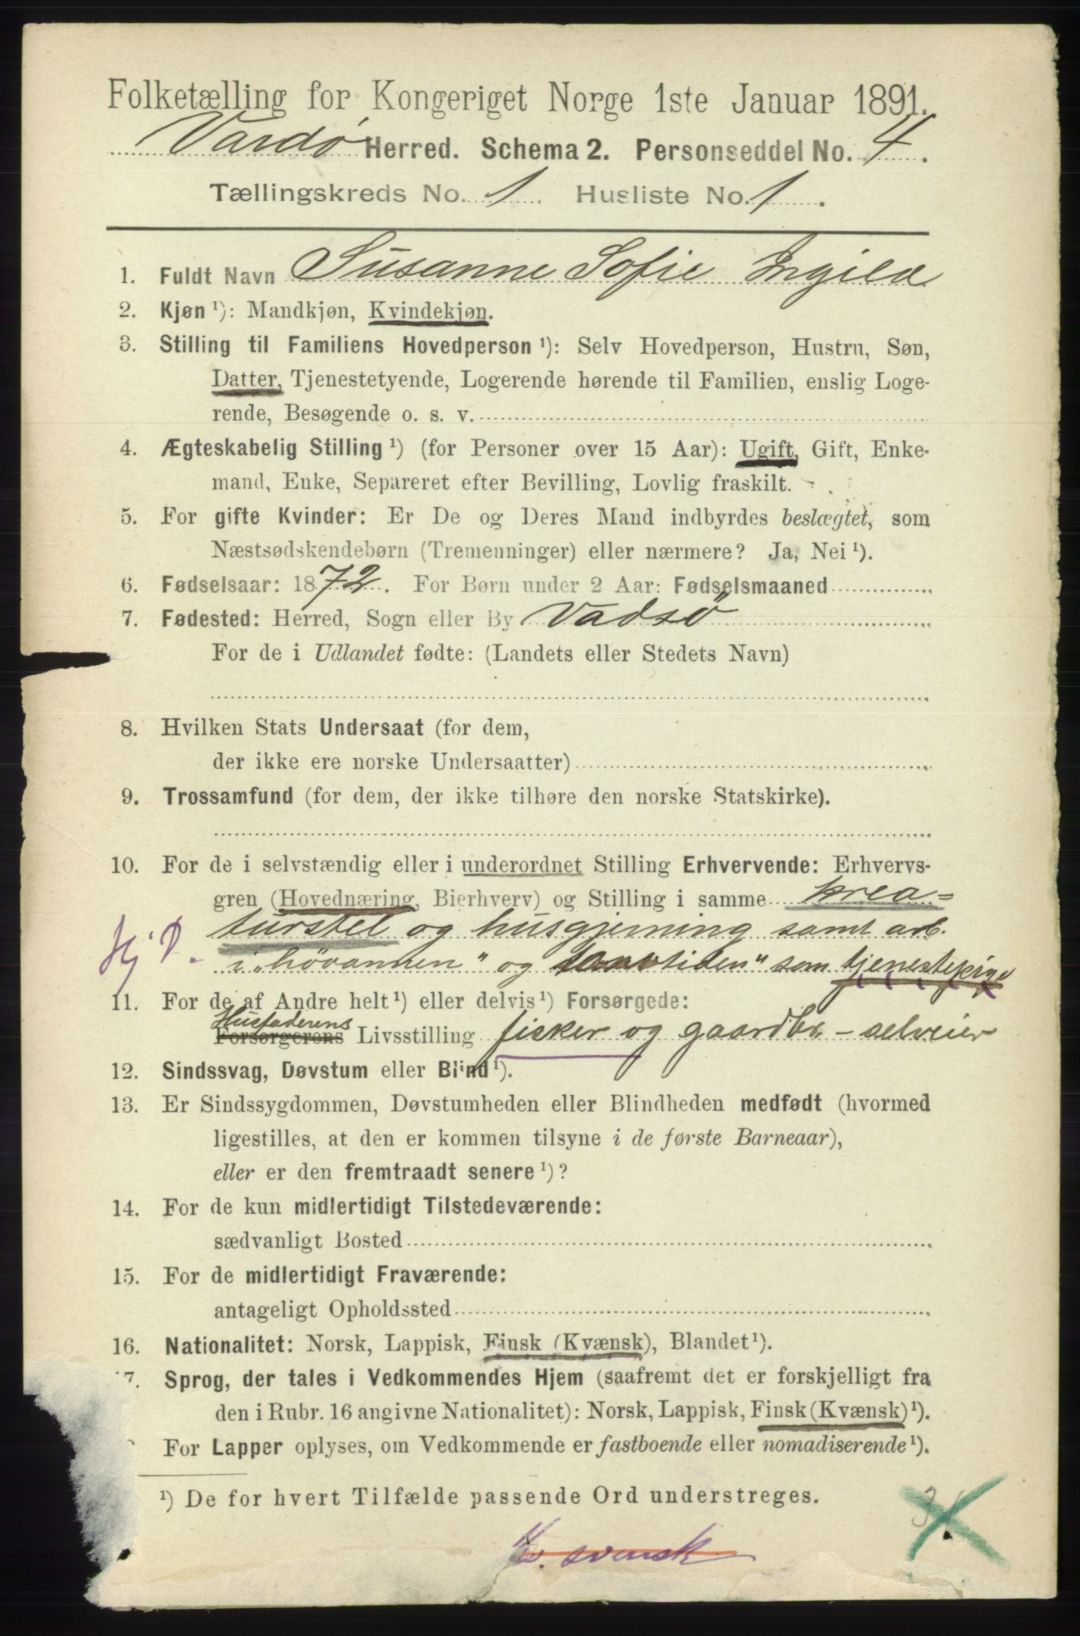 Folketælling for Kongeriget Norge 1ste Januar 1891.
Vardø Herred. Schema 2. Personseddel No. 4.
Tællingskreds No. 1. Husliste No. 1.
1. Fuldt Navn Susanne Sofie Ingild
2. Kjøn ¹): Mandkjøn, Kvindekjøn.
3. Stilling til Familiens Hovedperson ¹): Selv Hovedperson, Hustru, Søn,
Datter, Tjenestetyende, Logerende hørende til Familien, enslig Loge-
rende, Besøgende o. s. v.
4. Ægteskabelig Stilling ¹) (for Personer over 15 Aar): Ugift, Gift, Enke-
mand, Enke, Separeret efter Bevilling, Lovlig fraskilt.
5. For gifte Kvinder: Er De og Deres Mand indbyrdes beslægtet, som
Næstsødskendebørn (Tremenninger) eller nærmere? Ja, Nei ¹).
6. Fødselsaar: 1872. For Børn under 2 Aar: Fødselsmaaned
7. Fødested: Herred, Sogn eller By Vadsø
For de i Udlandet fødte: (Landets eller Stedets Navn)
8. Hvilken Stats Undersaat (for dem,
der ikke ere norske Undersaatter)
9. Trossamfund (for dem, der ikke tilhøre den norske Statskirke).
10. For de i selvstændig eller i underordnet Stilling Erhvervende: Erhvervs-
gren (Hovednæring, Bierhverv) og Stilling i samme krea-
turstel og husgjerning samt arb.
Hj. D. i „høvannen" og tiden" som tjenestepige
11. For de af Andre helt ¹) eller delvis ¹) Forsørgede:
Husfaderens
Forsørgerens Livsstilling fisker og gaardbr. – selveier
12. Sindssvag, Døvstum eller Blind ¹).
13. Er Sindssygdommen, Døvstumheden eller Blindheden medfødt (hvormed
ligestilles, at den er kommen tilsyne i de første Barneaar),
eller er den fremtraadt senere ¹)?
14. For de kun midlertidigt Tilstedeværende:
sædvanligt Bosted
15. For de midlertidigt Fraværende:
antageligt Opholdssted
16. Nationalitet: Norsk, Lappisk, Finsk (Kvænsk), Blandet ¹).
17. Sprog, der tales i Vedkommendes Hjem (saafremt det er forskjelligt fra
den i Rubr. 16 angivne Nationalitet): Norsk, Lappisk, Finsk (Kvænsk) ¹).
For Lapper oplyses, om Vedkommende er fastboende eller nomadiserende ¹).
¹) De for hvert Tilfælde passende Ord understreges.
svensk